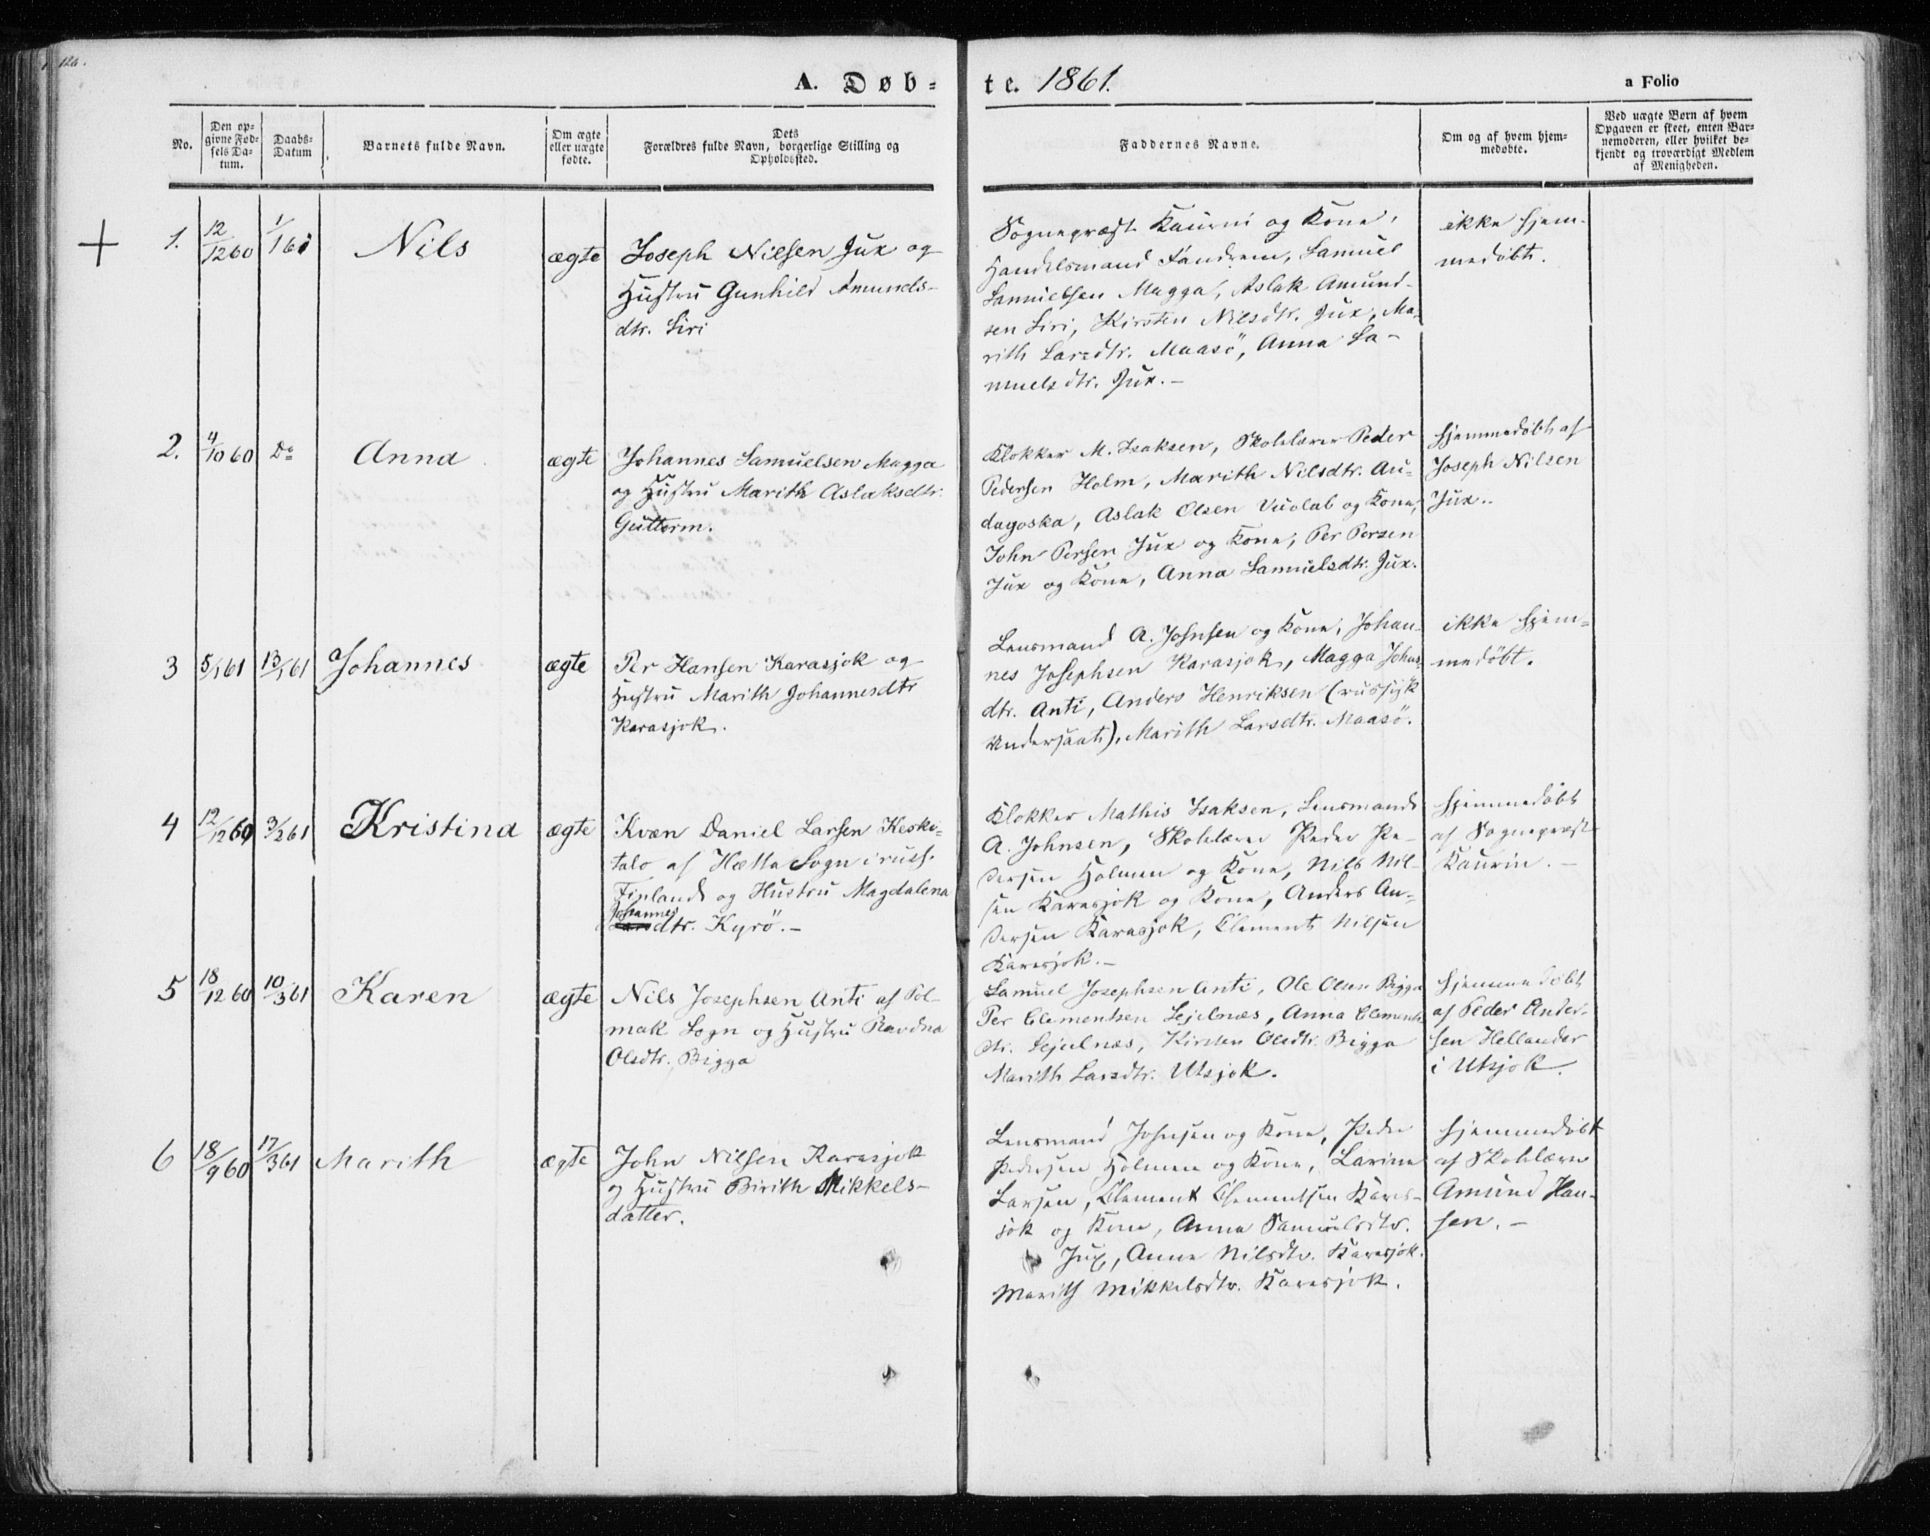 126.
A. Døb-
te. 1861.
a Folio
No.
Den op-
givne Fød-
sels Da-
tum.
Daabs-
Datum
Barnets fulde Navn.
Om ægte
eller uægte
fødte.
Dets
Forældres fulde Navn, borgerlige Stilling og
Opholdssted.
Faddernes Navne.
Om og af hvem hjem-
medøbte.
Ved uægte Børn af hvem
Opgaven er skeet, enten Bar-
nemoderen, eller hvilket be-
kjendt og troværdigt Medlem
af Menigheden.
+ 1. 12/12 60 1/1 61 Nils ægte
Joseph Nilsen Jux og
Hustru Gunhild Amunds-
dtr. Siri
Sognepræst Kaurin og Kone,
Handelsmand Fandrem, Samuel
Samuelsen Magga, Aslak Amund-
sen Siri, Kirsten Nilsdtr. Jux, Ma-
rith Larsdtr. Maasö, Anna Sa-
muelsdtr. Jux. -
ikke hjem-
medøbt.
2. 4/10 60 Do Anna ægte
Johannes Samuelsen Magga
og Hustru Marith Aslaksdtr.
Guttorm.
Klokker M. Isaksen, Skolelærer Peder
Pedersen Holm, Marith Nilsdtr. Au-
dagoska, Aslak Olsen Vuolab og Kone,
John Persen Jux og Kone, Per Persen
Jux og Kone, Anna Samuelsdtr. Jux.
hjemmedøbt af
Joseph Nilsen
Jux.
3 5/1 61 13/1 61 Johannes ægte
Per Hansen Karasjok og
Hustru Marith Johannesdtr
Karasjok.
Lensmand A. Johnsen og Kone, Johan-
nes Josephsen Karasjok, Magga Johns-
dtr. Anti, Anders Henriksen (russisk
Undersaat), Marith Larsdtr. Maasö.
ikke hjem-
medøbt.
4 12/12 60 3/2 61 Kristina ægte
Kvæn Daniel Larsen Keski-
talo af Hætta Sogn i russ.
Finland og Hustru Magdalena
Johannes
dtr. Kyrö. -
Klokker Mathis Isaksen, Lensmand
A. Johnsen, Skolelærer Peder Pe-
dersen Holmen og Kone, Nils Nil-
sen Karasjok og Kone, Anders An-
dersen Karasjok, Clement Nilsen
Karasjok. -
hjemmedøbt
af Sognepræst
Kaurin. -
5 18/12 60 10/3 61 Karen ægte
Nils Josephsen Anti af Pol-
mak Sogn og Hustru Ravdna
Olsdtr. Bigga
Samuel Josephsen Anti, Ole Olsen Bigga
Per Clementsen Sejelnæs, Anna Clements
dtr. Sejelnæs, Kirsten Olsdtr. Bigga
Marith Larsdtr. Utsjok.
hjemmedøbt
af Peder Ander-
sen Hellander
i Utsjok.
6 18/9 60 17/3 61 Marith ægte
John Nilsen Karasjok
og Hustru Birith Mikkels-
datter.
Lensmand Johnsen og Kone, Peder
Pedersen Holmen og Kone, Larine
Larsen, Clement Clementsen Karas-
jok og Kone, Anna Samuelsdtr.
Jux, Anne Nilsdtr. Karasjok.
Marith Mikkelsdtr. Karasjok.
hjemmedøbt
af Skolelærer
Amund Han-
sen. -